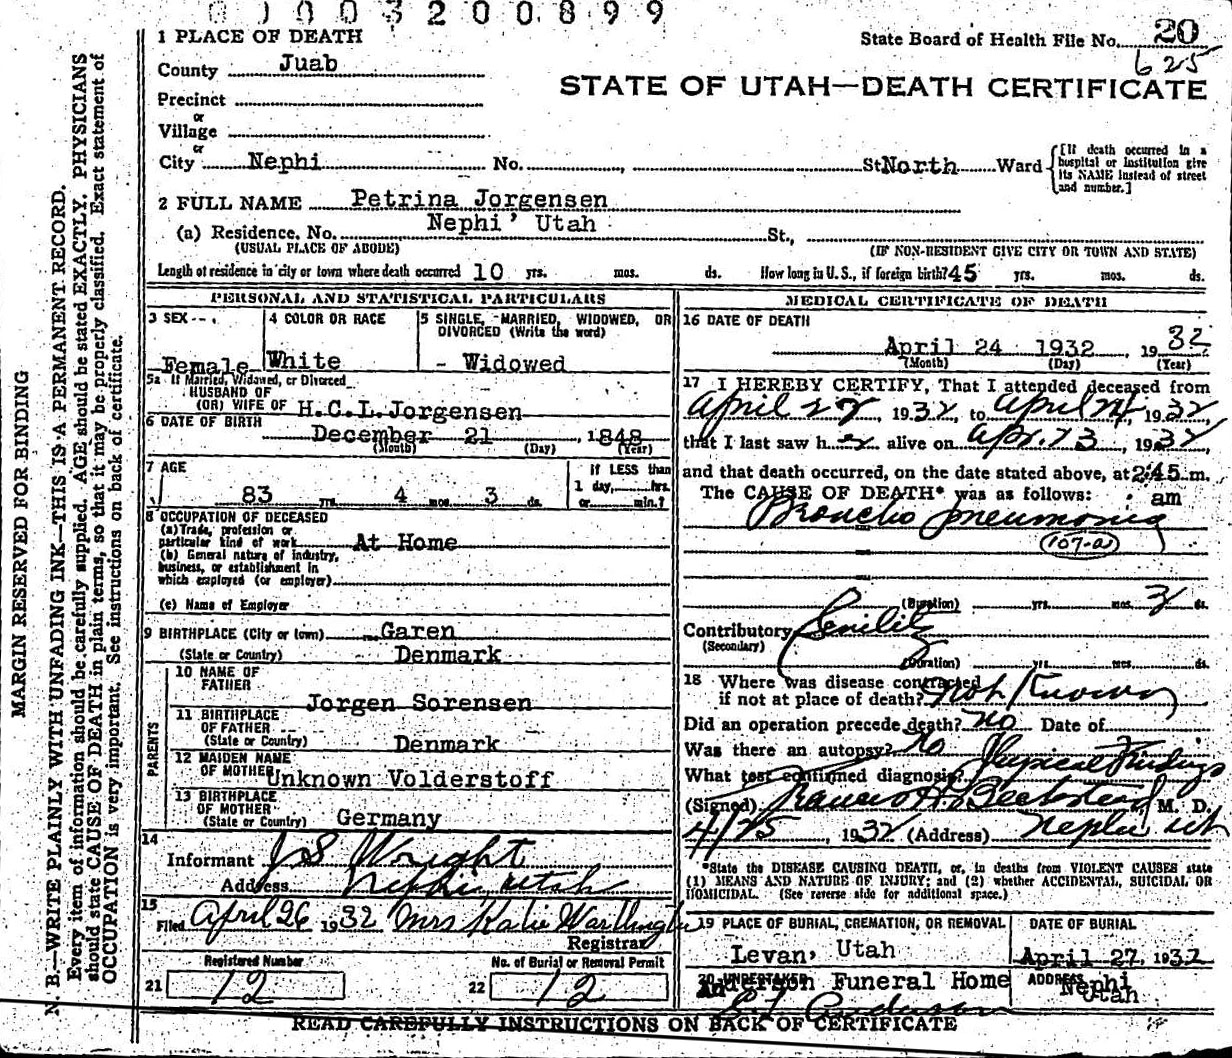 0 1 0 0 3 2 0 0 8 9 9
MARGIN RESERVED FOR BINDING
N. B.—WRITE PLAINLY WITH UNFADING INK—THIS IS A PERMANENT RECORD.
Every item of information should be carefully supplied. AGE should be stated EXACTLY. PHYSICIANS
should state CAUSE OF DEATH in plain terms, so that it may be properly classified. Exact statement of
OCCUPATION is very important. See instructions on back of certificate.
1 PLACE OF DEATH
State Board of Health File No. 20
625
County Juab
STATE OF UTAH—DEATH CERTIFICATE
Precinct
or
Village
or
City Nephi No. , St North Ward
[If death occurred in a
hospital or institution give
its NAME instead of street
and number.]
2 FULL NAME Petrina Jorgensen
(a) Residence, No. Nephi' Utah St.,
(USUAL PLACE OF ABODE) (IF NON-RESIDENT GIVE CITY OR TOWN AND STATE)
Length of residence in city or town where death occurred 10 yrs. mos. ds. How long in U. S., if foreign birth? 45 yrs. mos. ds.
PERSONAL AND STATISTICAL PARTICULARS
3 SEX
Female
4 COLOR OR RACE
White
5 SINGLE, MARRIED, WIDOWED, OR
DIVORCED (Write the word)
- Widowed
5a If Married, Widowed, or Divorced
HUSBAND OF
(OR) WIFE OF H.C.L.Jorgensen
6 DATE OF BIRTH
December 21 , 1848
(Month) (Day) (Year)
7 AGE
83 yrs. 4 mos. 3 ds.
If LESS than
1 day, hrs.
or min.?
8 OCCUPATION OF DECEASED
(a) Trade, profession or
particular kind of work At Home
(b) General nature of industry,
business, or establishment in
which employed (or employer)
(c) Name of Employer
9 BIRTHPLACE (City or town) Garen
(State or Country) Denmark
PARENTS
10 NAME OF
FATHER
Jorgen Sorensen
11 BIRTHPLACE
OF FATHER
(State or Country) Denmark
12 MAIDEN NAME
OF MOTHER Unknown Volderstoff
13 BIRTHPLACE
OF MOTHER
(State or Country) Germany
14
Informant J S Wright
Address Nephi Utah
15
Filed April 26 1932 Mrs Katie
Registrar
Registered Number
21 12
No. of Burial or Removal Permit
22 12
MEDICAL CERTIFICATE OF DEATH
16 DATE OF DEATH
April 24 1932 , 1932
(Month) (Day) (Year)
17 I HEREBY CERTIFY, That I attended deceased from
April , 1932, to April 24, 1932,
that I last saw her alive on Apr. 23, 1932
and that death occurred, on the date stated above, at 2:45 m.
The CAUSE OF DEATH* was as follows: am
Broncho pneumonia
107-a
(Duration) yrs. mos. 3 ds.
Contributory Senility
(Secondary)
(Duration) yrs. mos. ds.
18 Where was disease contracted
if not at place of death? Not Known
Did an operation precede death? no Date of
Was there an autopsy? No
What test confirmed diagnosis? Physical Findings
(Signed) Francis H. Beckstead M. D.
4/25, 1932 (Address) Nephi Ut
*State the DISEASE CAUSING DEATH, or, in deaths from VIOLENT CAUSES state
(1) MEANS AND NATURE OF INJURY; and (2) whether ACCIDENTAL, SUICIDAL OR
HOMICIDAL. (See reverse side for additional space.)
19 PLACE OF BURIAL, CREMATION, OR REMOVAL
Levan, Utah
DATE OF BURIAL
April 27, 1932
20 UNDERTAKER
Anderson Funeral Home
Anderson
ADDRESS
Nephi
Utah
READ CAREFULLY INSTRUCTIONS ON BACK OF CERTIFICATE